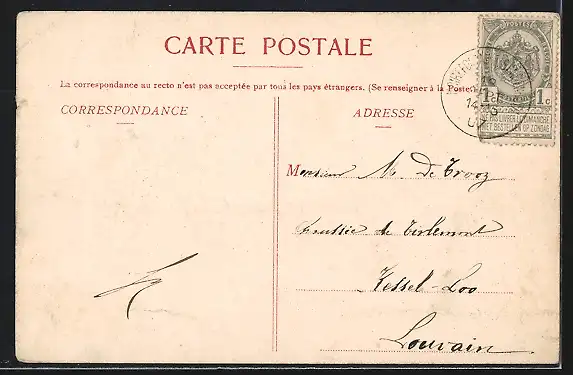 CARTE POSTALE
La correspondance au recto n'est pas acceptée par tous les pays étrangers. (Se renseigner à la Poste.)
CORRESPONDANCE
ADRESSE
POSTES
1 1c
NE PAS LIVRER LE DIMANCHE
NIET BESTELLEN OP ZONDAG
Monsieur M. De Trooz
de Tirlemont
Kessel-Loo
Louvain